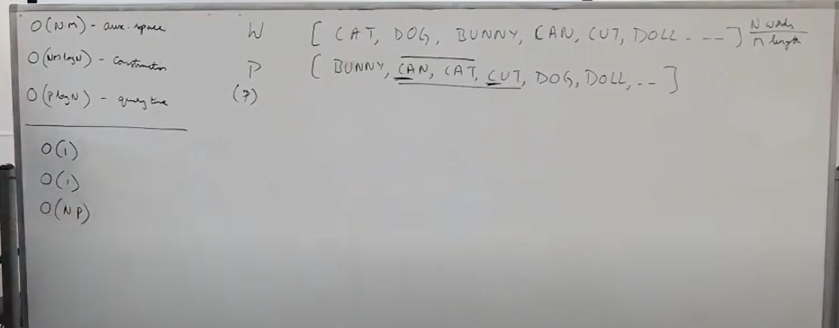 O(NM) - aux. space
O(NM logN) - construction
O(P logN) - query time
O(1)
O(1)
O(NP)
W [ CAT, DOG, BUNNY, CAN, CUT, DOLL - --- ] N words
M length
P [ BUNNY, CAN, CAT, CUT, DOG, DOLL, -- ]
(P)